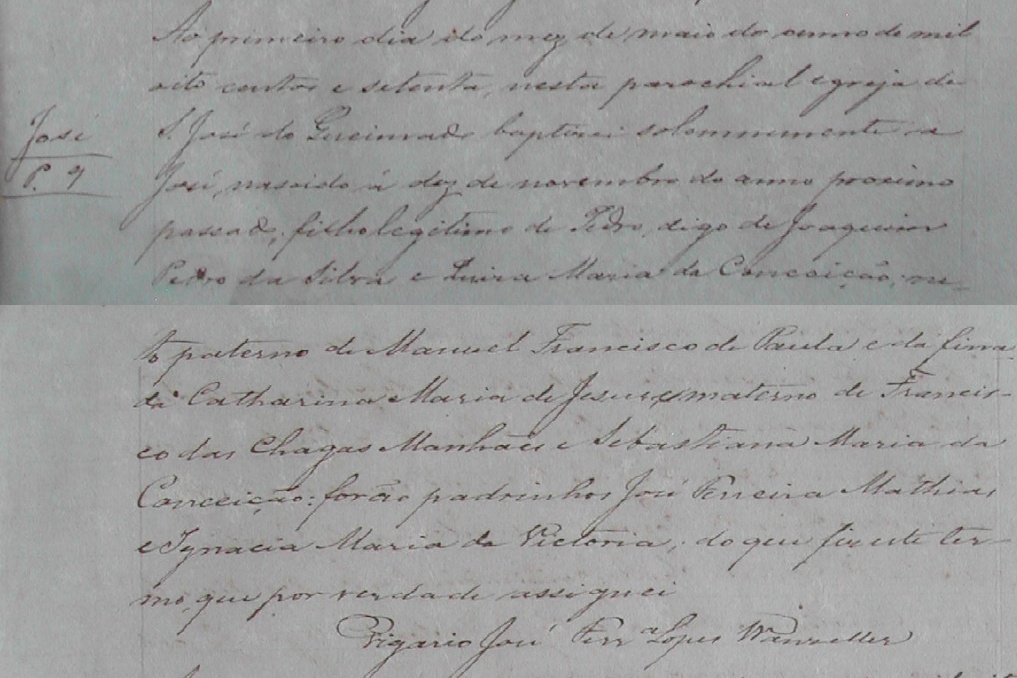 Ao primeiro dia do mez de maio do anno de mil
oito centos e setenta, nesta parochial egreja de
S. José do Queimado baptizei solemnemente a
José
P. 9
José, nascido á dez de novembro do anno proximo
passado, filho legitimo de Pedro, digo de Joaquim
Pedro da Silva e Luiza Maria da Conceição, ne-
to paterno de Manuel Francisco de Paula e da fina-
da Catharina Maria de Jesus, e materno de Francis-
co das Chagas Manhães e Sebastiana Maria da
Conceição: forão padrinhos José Ferreira Mathias
e Ignacia Maria da Victoria, do que fiz este ter-
mo, que por verdade assignei
Vigario José Ferra Lopes Wanzeller